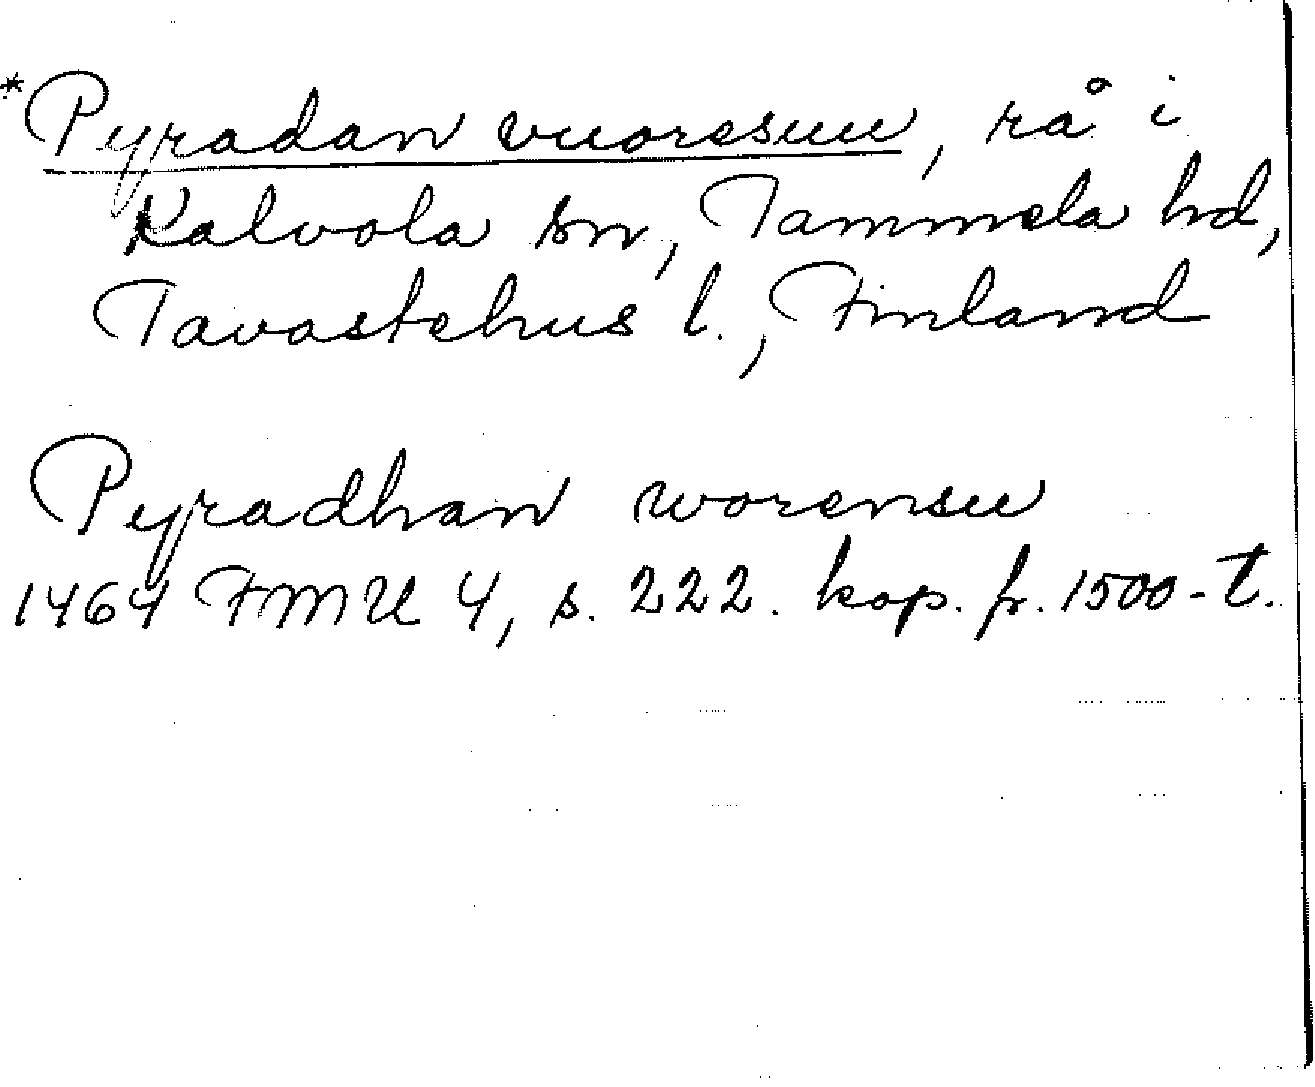 *Pyradan vuoresuu, rå i
Kalvola sn, Tammela hd,
Tavastehus l., Finland
Pyradhan worensu
1464 FMU 4, s. 222. kop. fr. 1500-t.